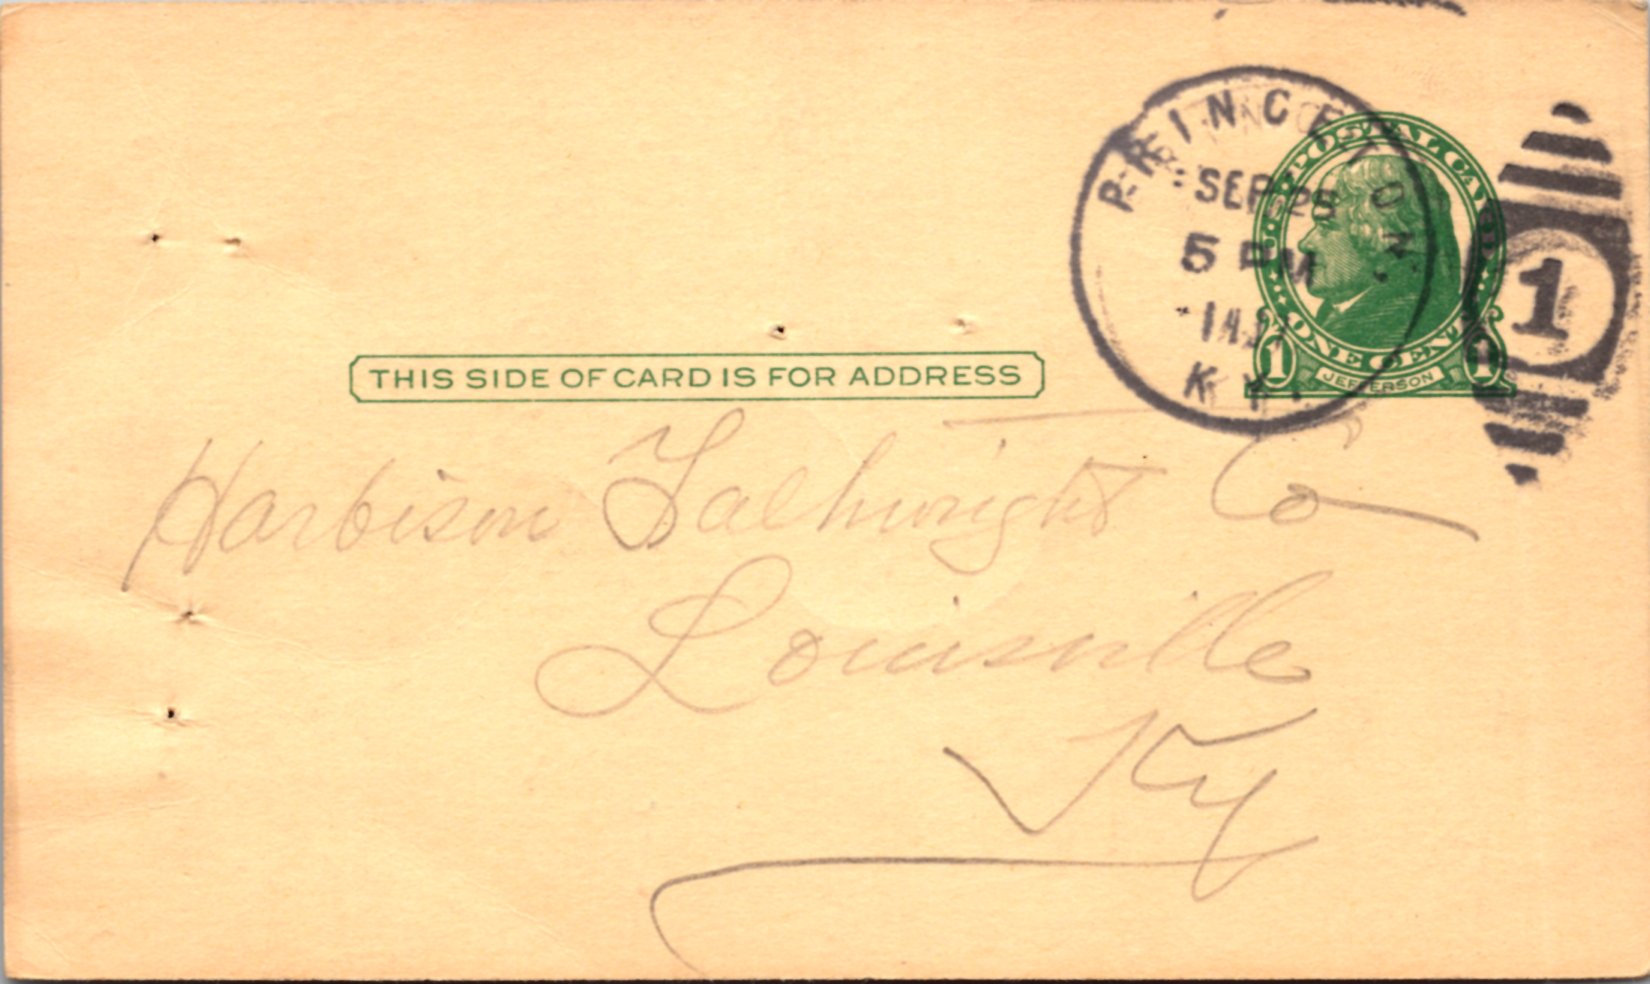 PRINCETON.
SEP 25
5 PM
KY.
U.S. POSTAL CARD
ONE CENT
1 JEFFERSON 1
1
THIS SIDE OF CARD IS FOR ADDRESS
Harbison Gathwright Co
Louisville
Ky